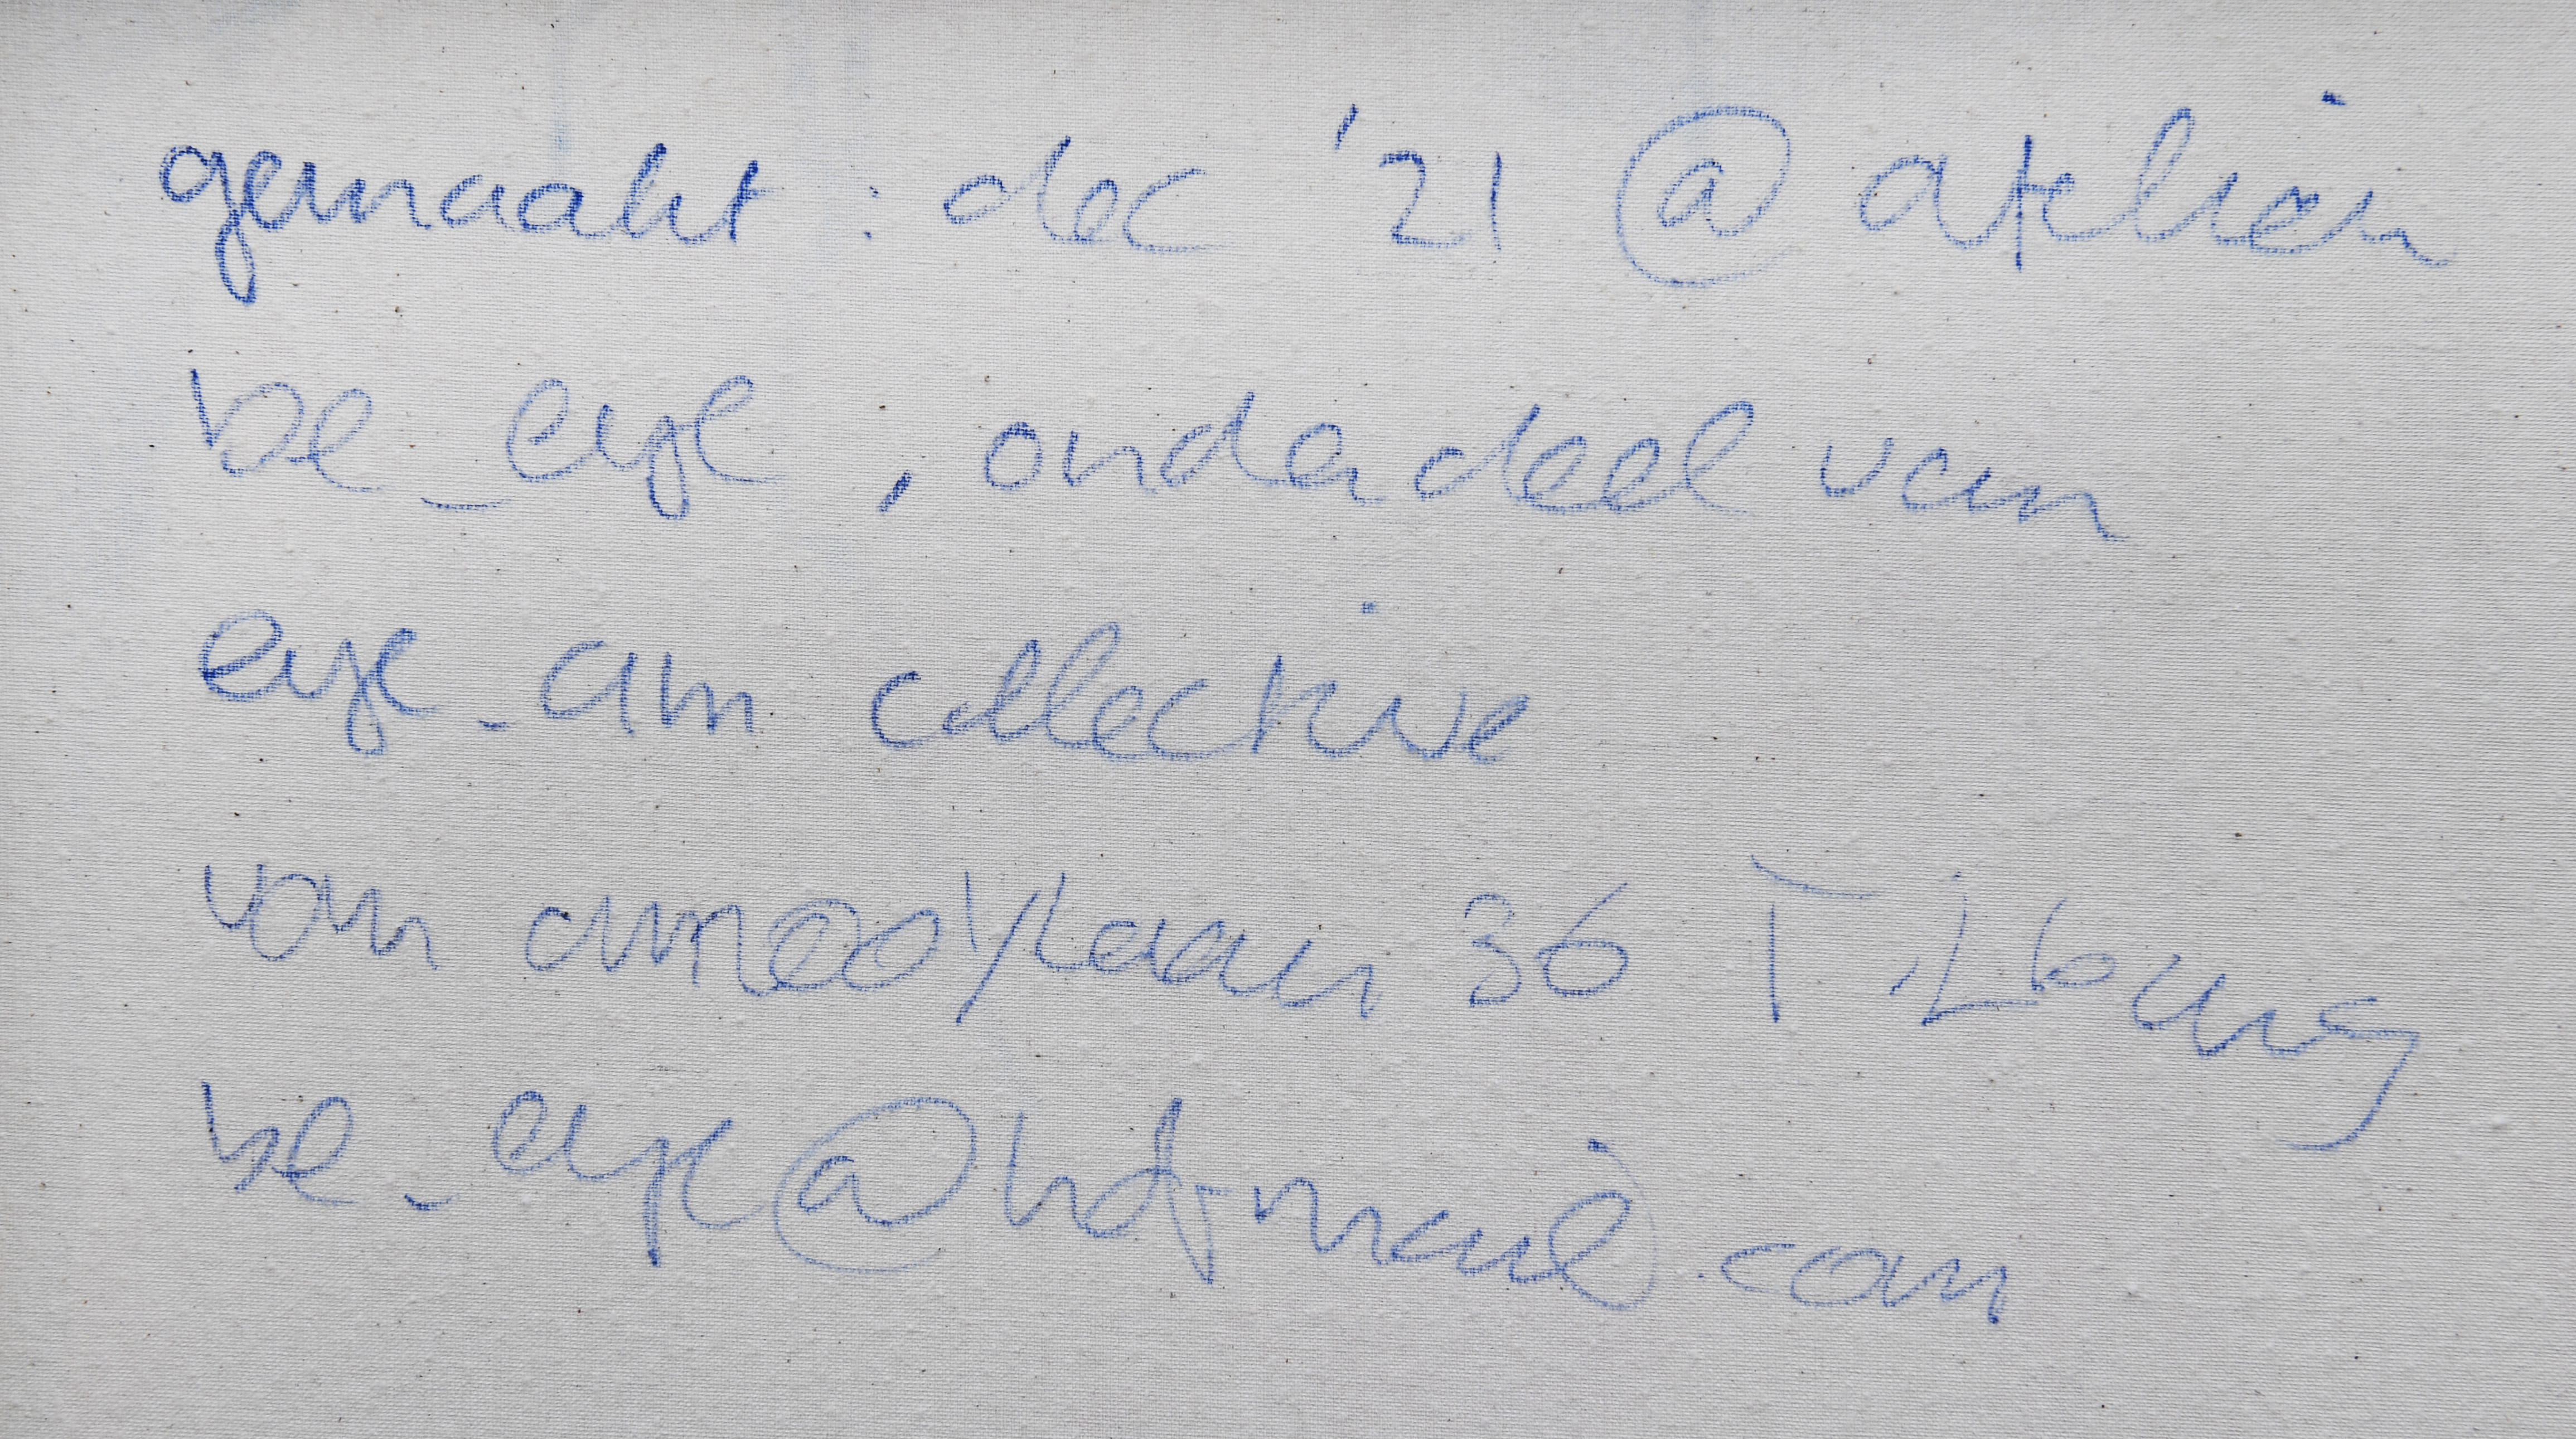 gemaakt : dec '21 @ atelier
be_eye , onderdeel van
eye_am collective
van anrooylaan 36 Tilburg
be_eye@hotmail.com